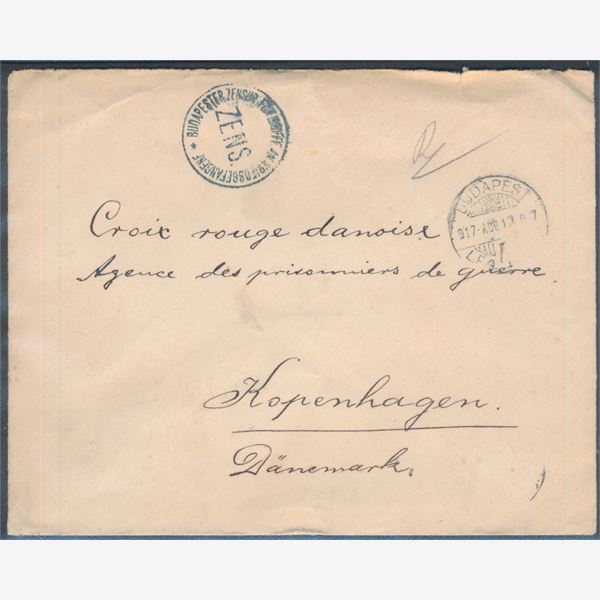 BUDAPESTER ZENSUR FÜR BRIEFE AN KRIEGSGEFANGENE
ZENS.
BUDAPEST
917
Croix rouge danoise
Agence des prisonniers de guerre
Kopenhagen.
Dänemark.